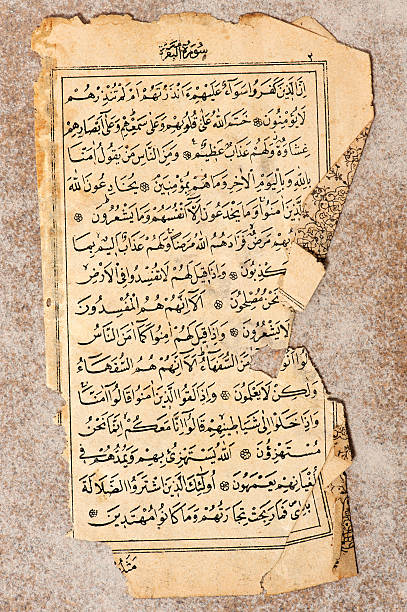 ٢
سورة البقرة
اِنَّ الَّذٖينَ كَفَرُوا سَوَٓاءٌ عَلَيْهِمْ ءَاَنْذَرْتَهُمْ اَمْ لَمْ تُنْذِرْهُمْ
لَا يُؤْمِنُونَ ۞ خَتَمَ اللّٰهُ عَلٰى قُلُوبِهِمْ وَعَلٰى سَمْعِهِمْ وَعَلٰٓى اَبْصَارِهِمْ
غِشَاوَةٌ وَلَهُمْ عَذَابٌ عَظٖيمٌ ۞ وَمِنَ النَّاسِ مَنْ يَقُولُ اٰمَنَّا
بِاللّٰهِ وَبِالْيَوْمِ الْاٰخِرِ وَمَا هُمْ بِمُؤْمِنٖينَ ۞ يُخَادِعُونَ اللّٰهَ
الَّذٖينَ اٰمَنُوا وَمَا يَخْدَعُونَ اِلَّٓا اَنْفُسَهُمْ وَمَا يَشْعُرُونَ ۞
بِهِمْ مَرَضٌ فَزَادَهُمُ اللّٰهُ مَرَضًا وَلَهُمْ عَذَابٌ اَلٖيمٌ بِمَا
يَكْذِبُونَ ۞ وَاِذَا قٖيلَ لَهُمْ لَا تُفْسِدُوا فِى الْاَرْضِ
نَحْنُ مُصْلِحُونَ ۞ اَلَٓا اِنَّهُمْ هُمُ الْمُفْسِدُونَ
لَا يَشْعُرُونَ ۞ وَاِذَا قٖيلَ لَهُمْ اٰمِنُوا كَمَٓا اٰمَنَ النَّاسُ
اٰمَنَ السُّفَهَٓاءُ اَلَٓا اِنَّهُمْ هُمُ السُّفَهَٓاءُ
وَلٰكِنْ لَا يَعْلَمُونَ ۞ وَاِذَا لَقُوا الَّذٖينَ اٰمَنُوا قَالُٓوا اٰمَنَّا
وَاِذَا خَلَوْا اِلٰى شَيَاطٖينِهِمْ قَالُٓوا اِنَّا مَعَكُمْ اِنَّمَا نَحْنُ
مُسْتَهْزِؤُنَ ۞ اَللّٰهُ يَسْتَهْزِئُ بِهِمْ وَيَمُدُّهُمْ فٖى
طُغْيَانِهِمْ يَعْمَهُونَ ۞ اُولٰٓئِكَ الَّذٖينَ اشْتَرَوُا الضَّلَالَةَ
فَمَا رَبِحَتْ تِجَارَتُهُمْ وَمَا كَانُوا مُهْتَدٖينَ ۞